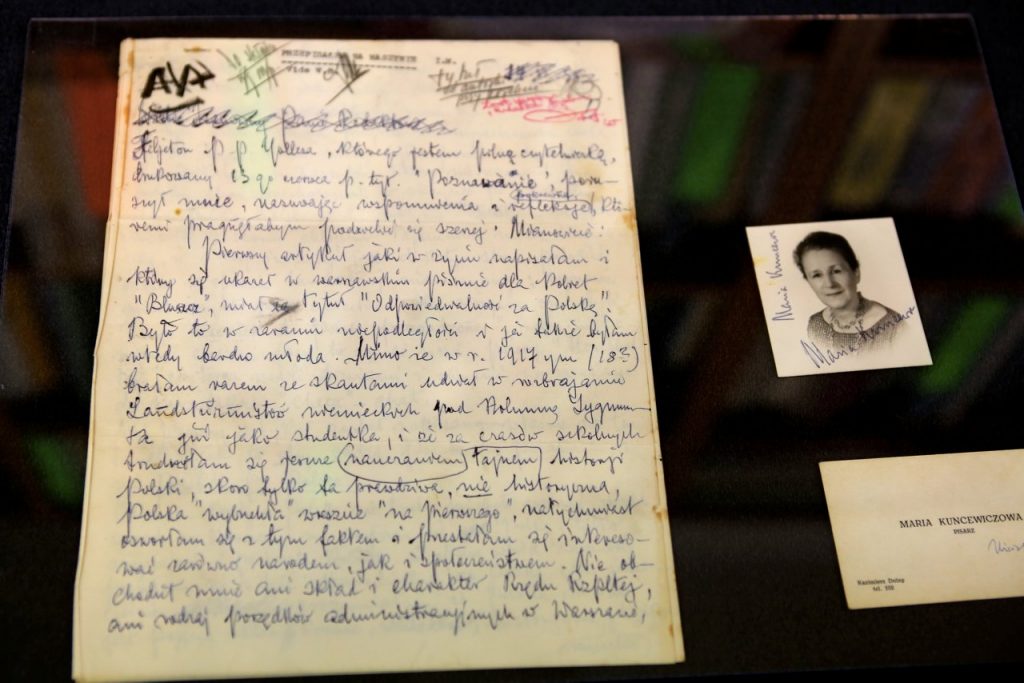 PRZEPISANE NA MASZYNIE I.N.
tytuł
Feljeton p. p. Yollesa, którego jestem pilną czytelniczką,
drukowany 13-go czerwca p. tyt. "Poznawanie", poru-
szył mnie, nasuwając wspomnienia i refleksje, któ-
remi pragnęłabym podzielić się szerzej. Mianowicie:
Pierwszy artykuł jaki w życiu napisałam i
który się ukazał w warszawskim piśmie dla kobiet
"Bluszcz", miał tytuł "Odpowiedzialność za Polskę".
Było to w zaraniu niepodległości i ja także byłam
wtedy bardzo młoda. Mimo że w r. 1917 ym (18?)
brałam razem ze skautami udział w rozbrajaniu
Landsturmistów niemieckich pod Kolumną Zygmun-
ta już jako studentka, i że za czasów szkolnych
trudniłam się nauczaniem tajnem historji
Polski, skoro tylko ta prawdziwa, nie historyczna,
Polska "wybuchła" wreszcie "na pierwszego", natychmiast
oswoiłam się z tym faktem i przestałam się intereso-
wać zarówno narodem, jak i społeczeństwem. Nie ob-
chodził mnie ani skład i charakter Rządu Rzpltej,
ani rodzaj porządków administracyjnych w Warszawie,
Maria Kuncewicz
Maria Kuncewicz
MARIA KUNCEWICZOWA
PISARZ
Kazimierz Dolny
tel. 102